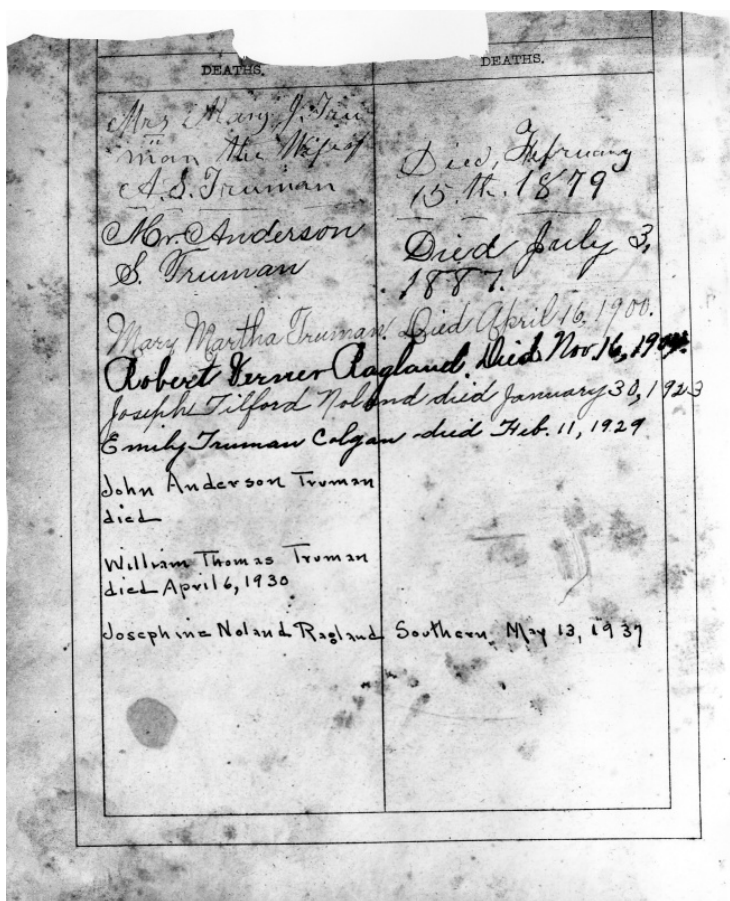 DEATHS. DEATHS.
Mrs Mary, J. Tru
man the Wife of
A. S. Truman
Died, February
15. th. 1879
Mr. Anderson
S. Truman
Died July 3,
1887.
Mary Martha Truman. Died April 16, 1900.
Robert Verner Ragland. Died Nov. 16, 
Joseph Tilford Noland died January 30, 1923
Emily Truman Colgan died Feb. 11, 1929
John Anderson Truman
died
William Thomas Truman
died April 6, 1930
Josephine Noland Ragland Southern May 13, 1937